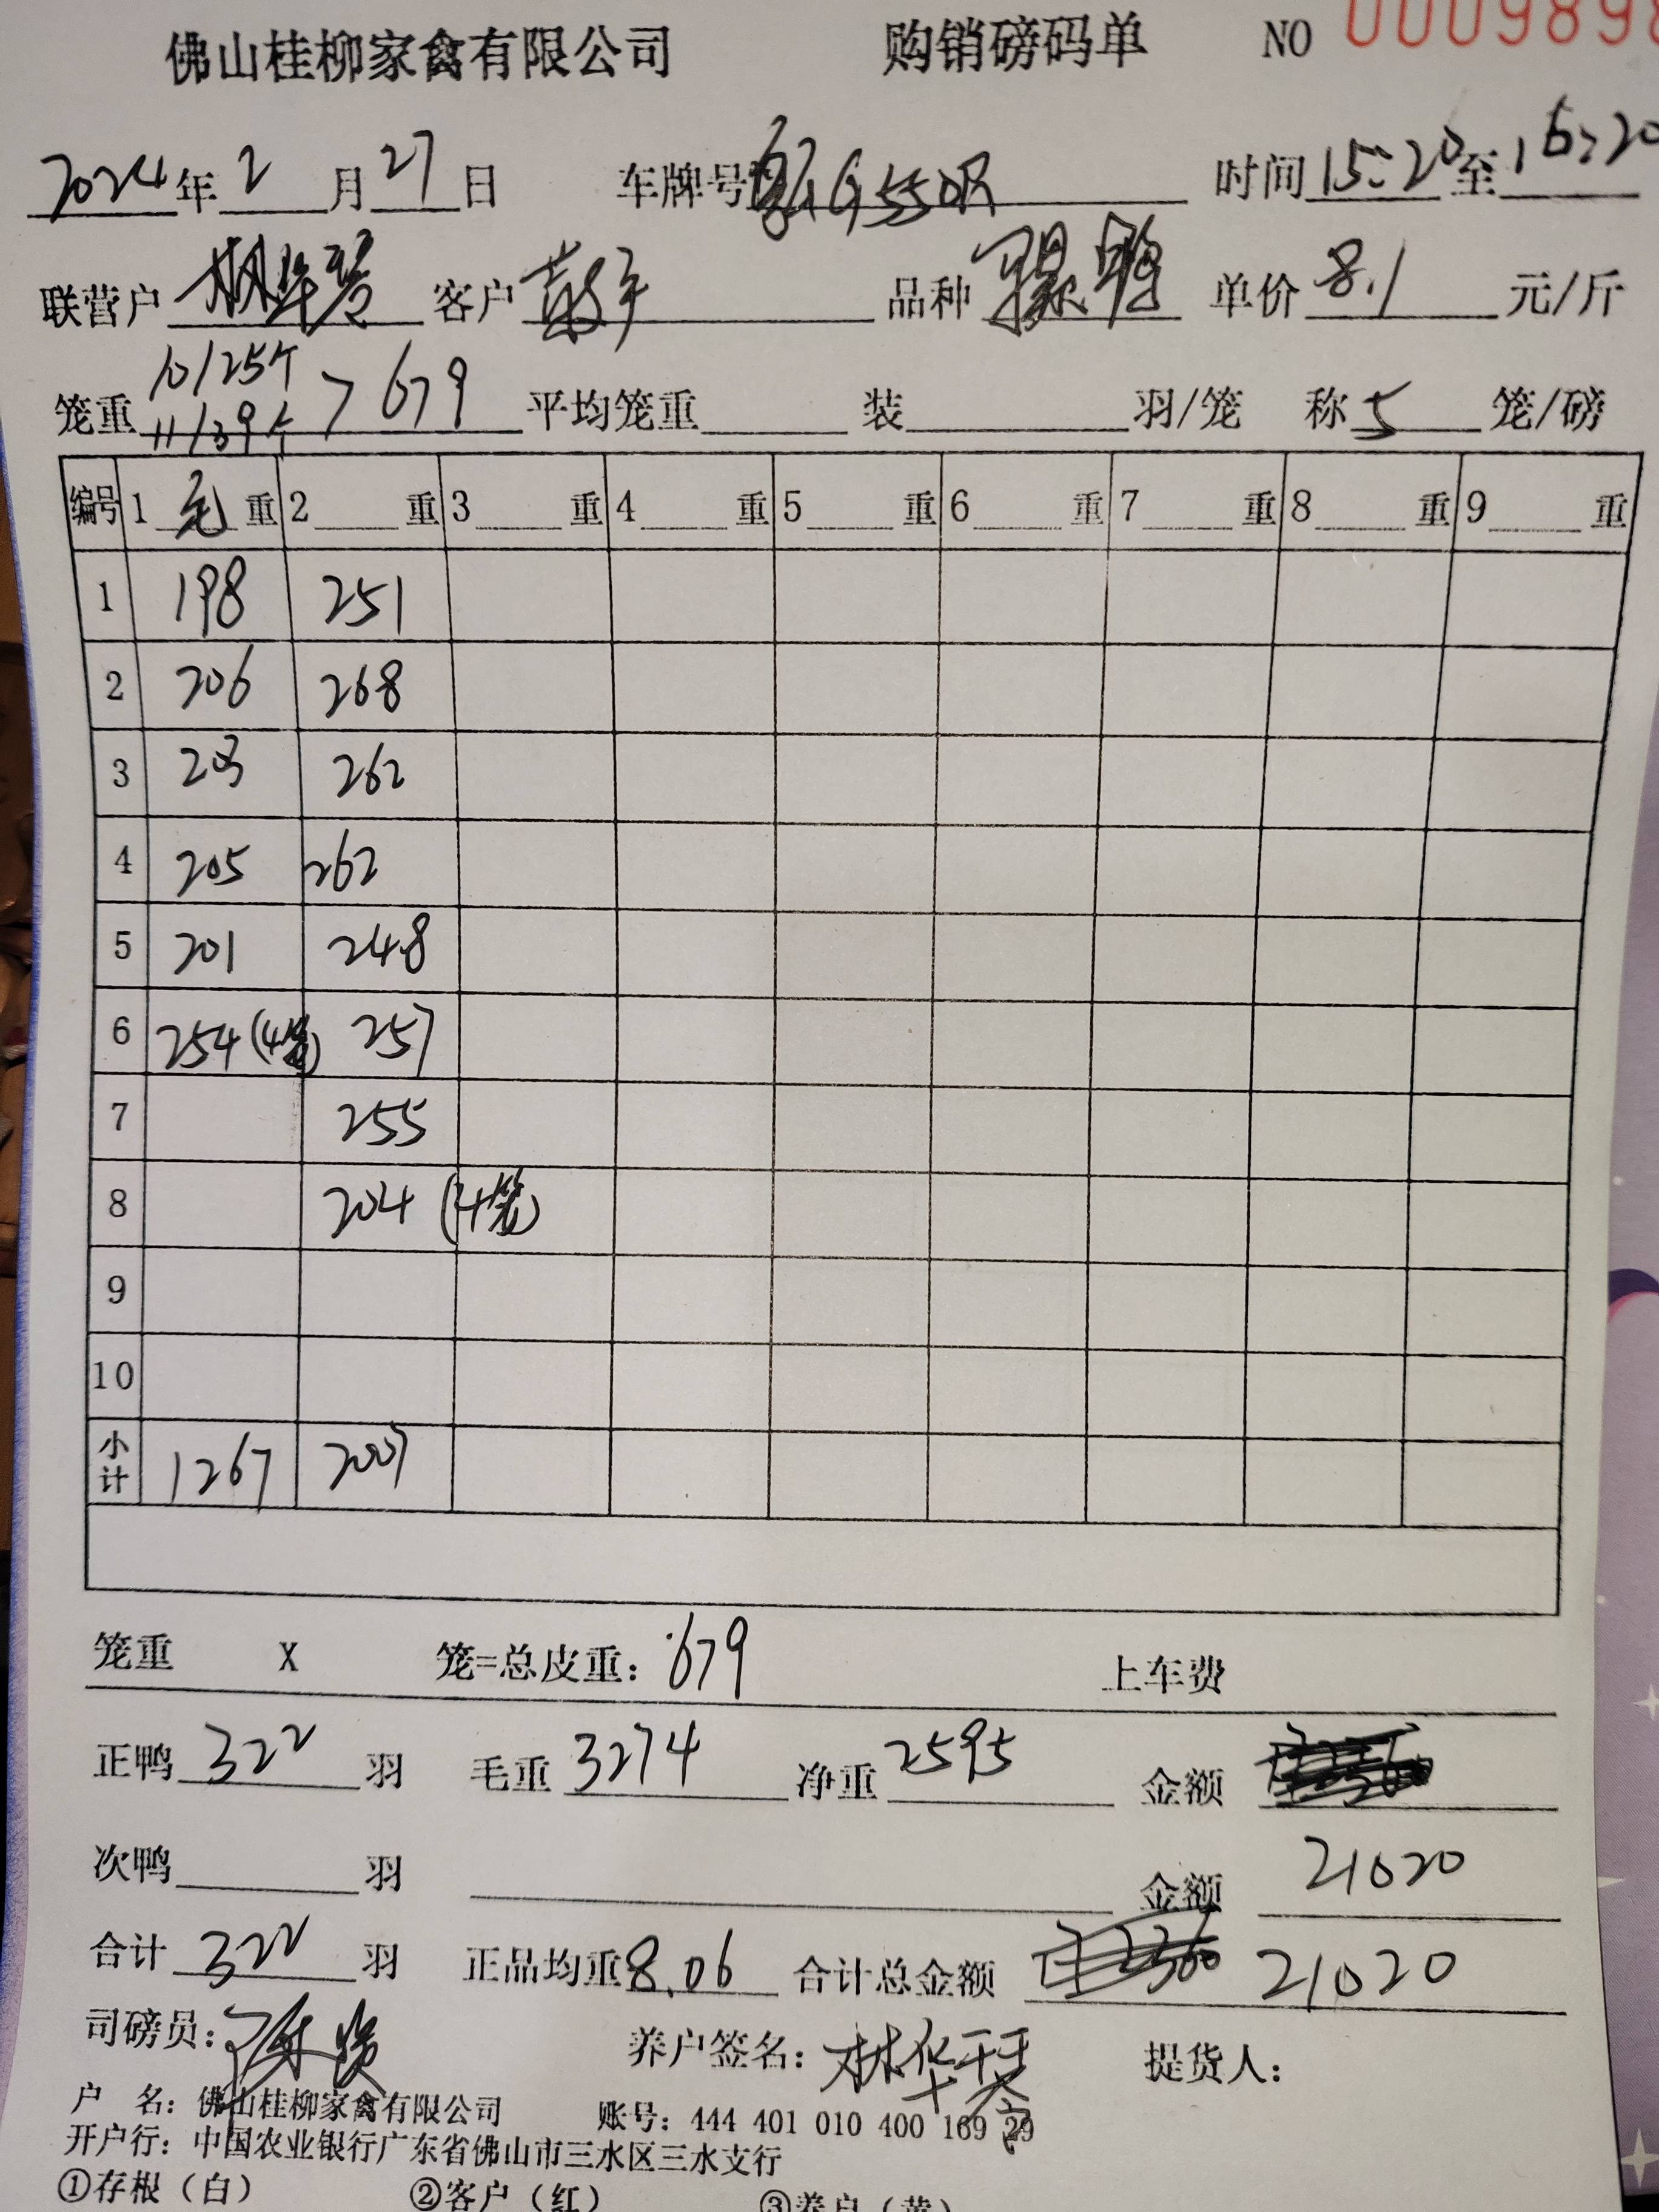 佛山桂柳家禽有限公司 购销磅码单 NO 0009898
2024年2月27日 车牌号 G550R 时间15:20至16:20
联营户 林华琴 客户 品种 骡鸭 单价8.1元/斤
笼重 10/25个 11/39个 > 679 平均笼重 装 羽/笼 称5笼/磅
编号 1毛重 2 重 3 重 4 重 5 重 6 重 7 重 8 重 9 重
1 198 251
2 206 268
3 203 262
4 205 262
5 201 248
6 254(4笼) 257
7 255
8 204(4笼)
9
10
小计 1267 2007
笼重 X 笼=总皮重：679 上车费
正鸭322羽 毛重3274 净重2595 金额
次鸭 羽 金额 21020
合计322羽 正品均重8.06 合计总金额 21020
司磅员： 养户签名：林华琴 提货人：
户 名：佛山桂柳家禽有限公司 账号：444 401 010 400 169 29
开户行：中国农业银行广东省佛山市三水区三水支行
①存根（白） ②客户（红） ③养户（黄）